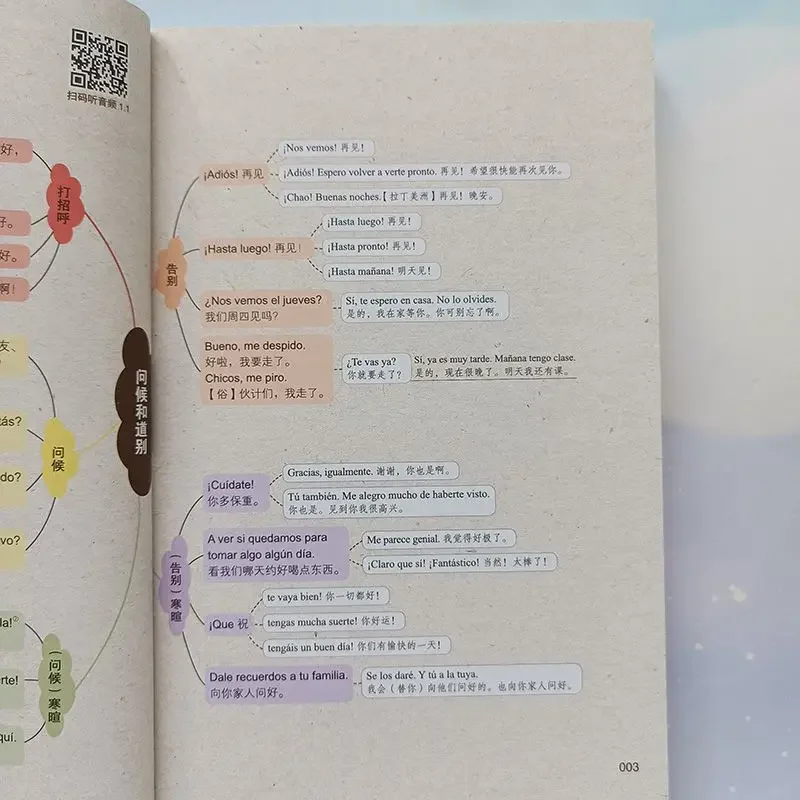 扫码听音频 1.1
好，
好。
好。
啊！
打招呼
友、
tás?
do?
vo?
问候
问候和道别
la!②
rte!
quí.
（问候）寒暄
告别
¡Adiós! 再见
¡Nos vemos! 再见！
¡Adiós! Espero volver a verte pronto. 再见！希望很快能再次见你。
¡Chao! Buenas noches.【拉丁美洲】再见！晚安。
¡Hasta luego! 再见！
¡Hasta luego! 再见！
¡Hasta pronto! 再见！
¡Hasta mañana! 明天见！
¿Nos vemos el jueves?
我们周四见吗？
Sí, te espero en casa. No lo olvides.
是的，我在家等你。你可别忘了啊。
Bueno, me despido.
好啦，我要走了。
Chicos, me piro.
【俗】伙计们，我走了。
¿Te vas ya?
你就要走了？
Sí, ya es muy tarde. Mañana tengo clase.
是的，现在很晚了。明天我还有课。
（告别）寒暄
¡Cuídate!
你多保重。
Gracias, igualmente. 谢谢，你也是啊。
Tú también. Me alegro mucho de haberte visto.
你也是。见到你我很高兴。
A ver si quedamos para
tomar algo algún día.
看我们哪天约好喝点东西。
Me parece genial. 我觉得好极了。
¡Claro que sí! ¡Fantástico! 当然！太棒了！
¡Que 祝
te vaya bien! 你一切都好！
tengas mucha suerte! 你好运！
tengáis un buen día! 你们有愉快的一天！
Dale recuerdos a tu familia.
向你家人问好。
Se los daré. Y tú a la tuya.
我会（替你）向他们问好的。也向你家人问好。
003